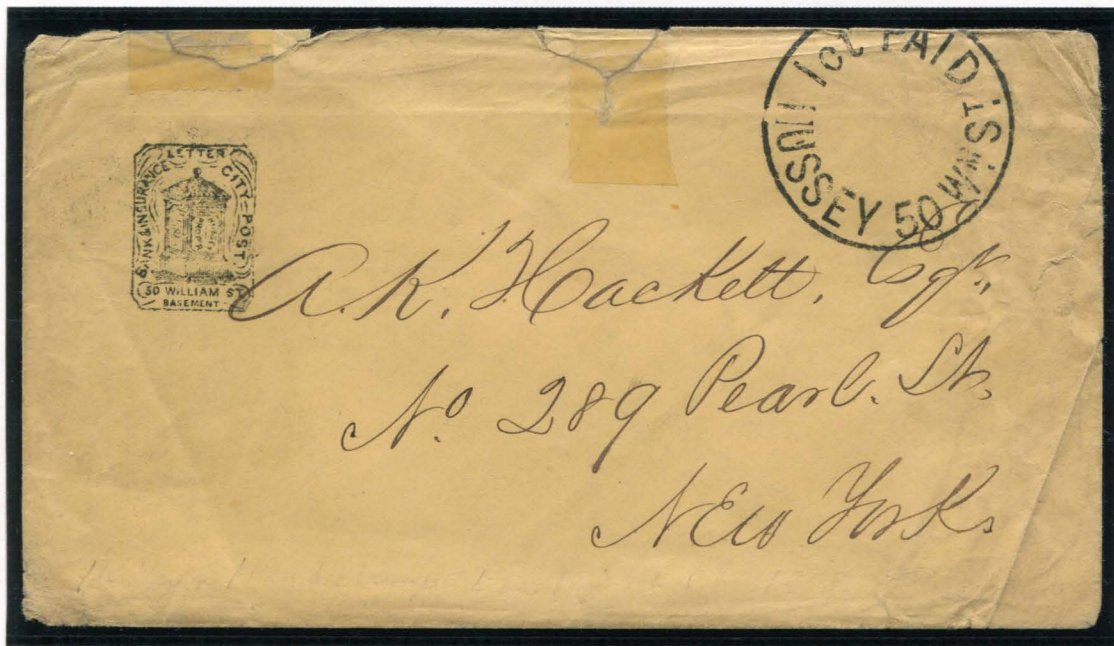 1ct PAID
HUSSEY 50 Wm ST.
LETTER
BANK & INSURANCE CITY POST
50 WILLIAM ST
BASEMENT
A. K. Hackett, Esqr,
No 289 Pearl. St,
New York